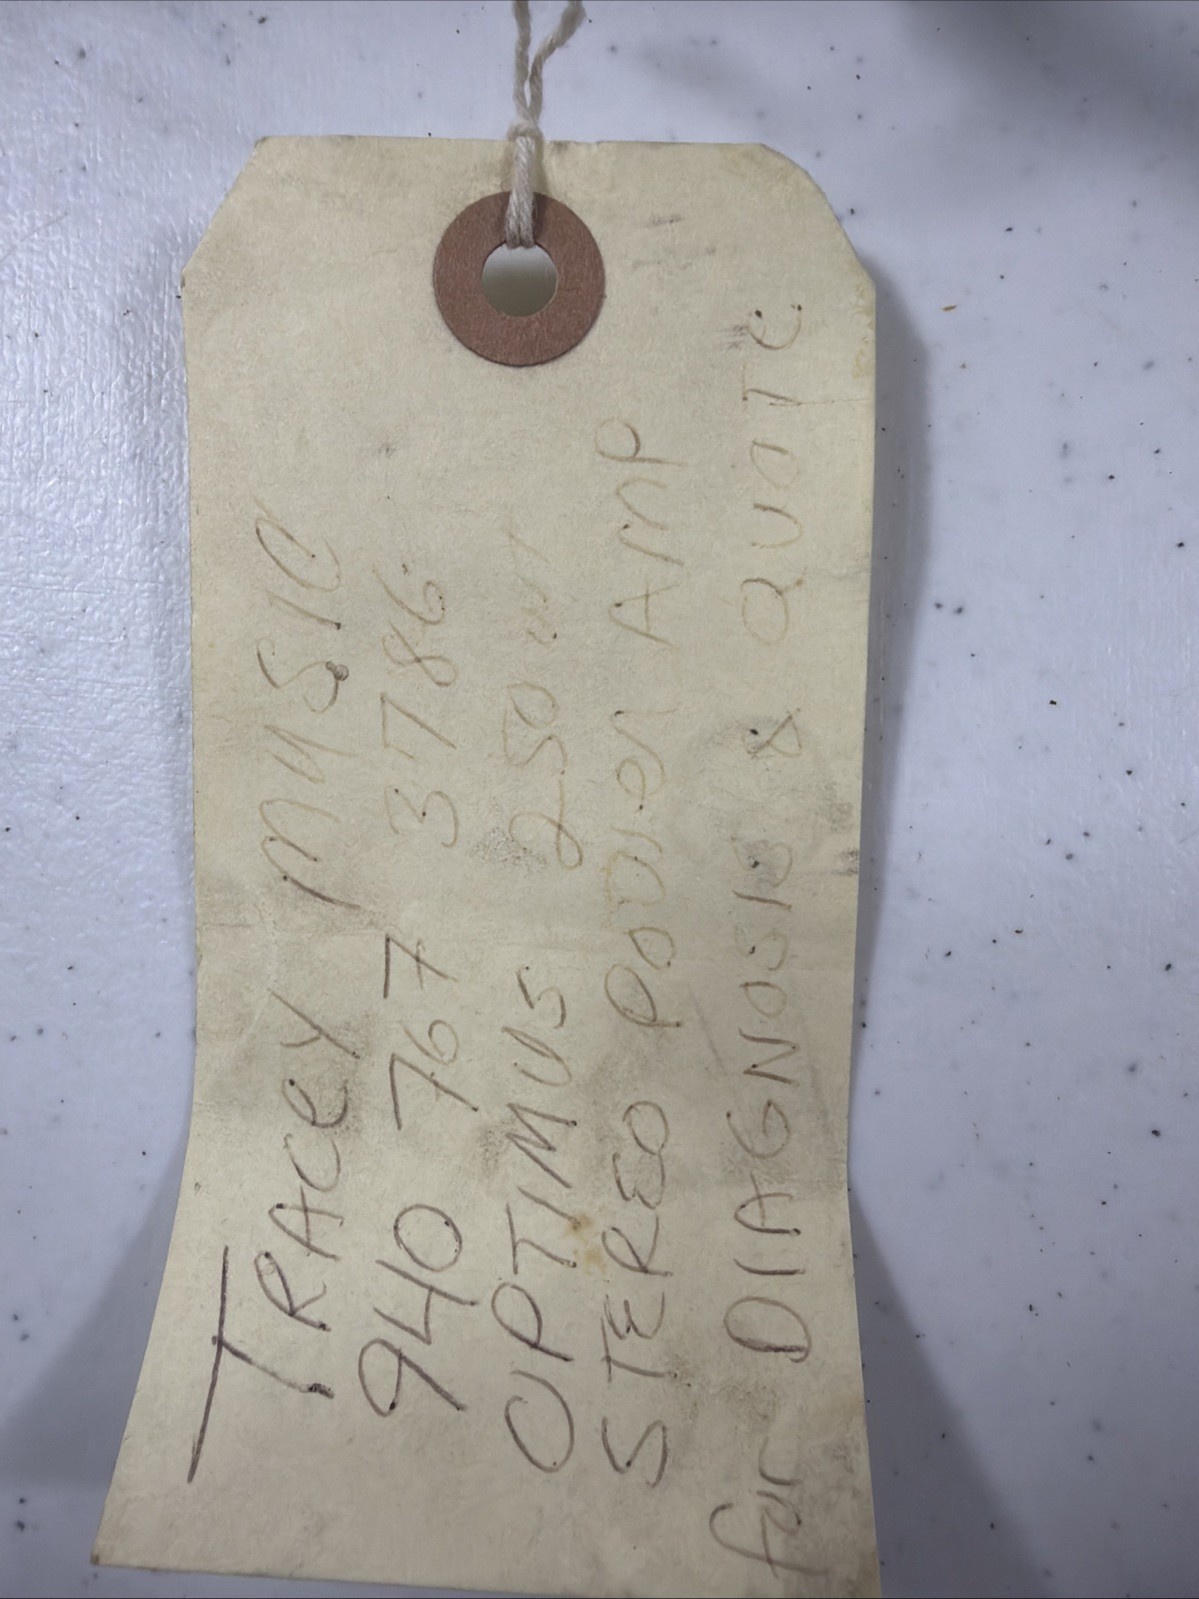 TRACEY MUSIC
940 767 3786
OPTIMUS 250W
STEREO POWER AMP
for DIAGNOSIS & QUOTE